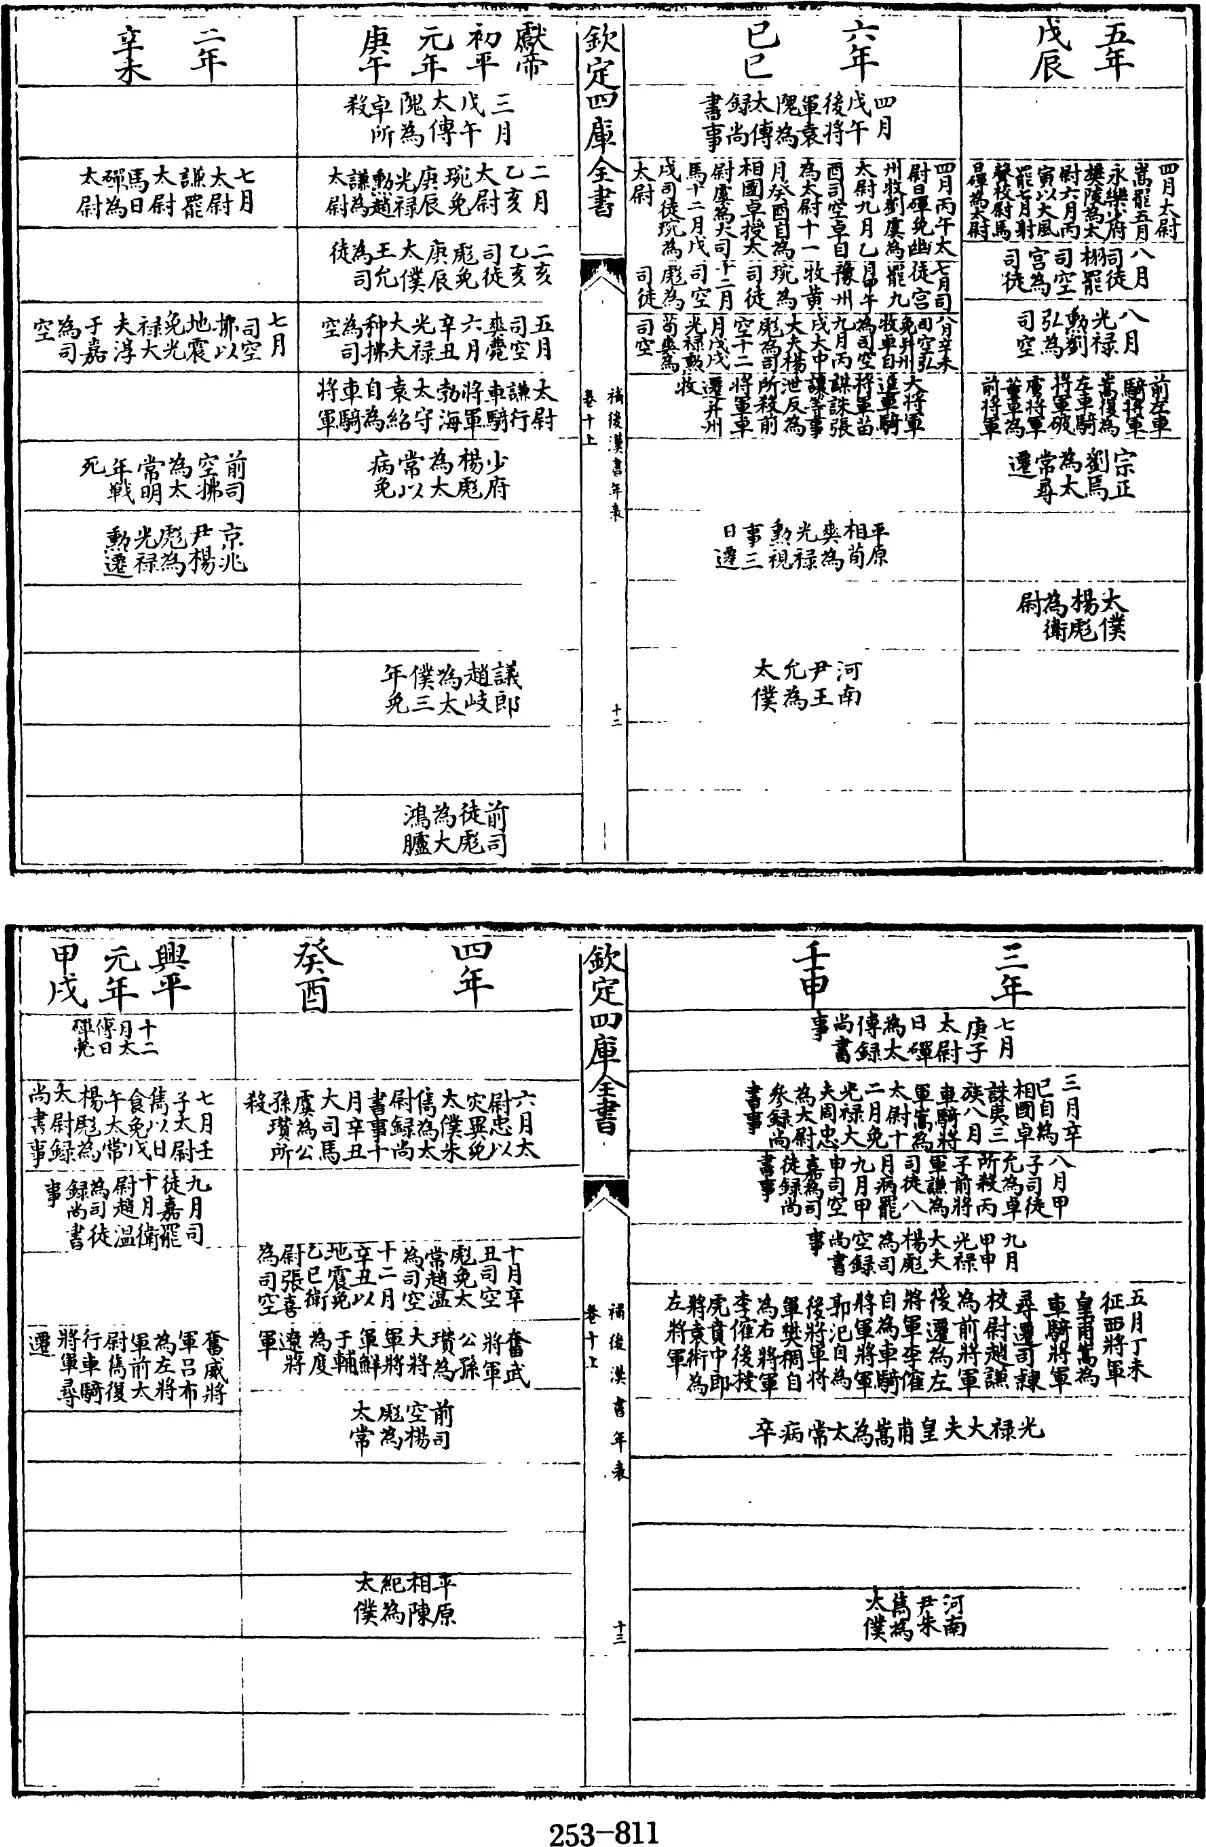 五年戊辰
四月太尉嵩罷五月永樂少府樊陵為太尉六月丙寅以大風罷七月射聲校尉馬日磾為太尉
八月司徒栩罷司空宮為司徒
八月光祿勳劉弘為司空
前左車騎將軍嵩復為左車騎將軍破虜將軍董卓為前將軍
宗正劉焉為太常尋遷
太僕楊彪為衛尉
六年己巳
四月戊午後將軍袁隗為太傅錄尚書事
四月丙午太尉日磾免幽州牧劉虞為太尉九月乙酉司空卓自為太尉十一月癸酉自為相國卓授太尉虞為大司馬十二月戊戌司徒琬為太尉
七月司徒宮罷九月甲午豫州牧黃琬為司徒十二月司空彪為司徒
八月辛未司空弘免并州牧卓自為司空九月丙戌大中大夫楊彪為司空十二月戊戌光祿勳荀爽為司空
大將軍進車騎將軍苗謀誅張讓等事泄反為所殺前將軍卓遷并州牧
平原相荀爽為光祿勳視事三日遷
河南尹王允為太僕
欽定四庫全書
補後漢書年表
卷十上
十二
獻帝初平元年庚午
三月戊午太傅隗為卓所殺
二月乙亥太尉琬免庚辰光祿勳趙謙為太尉
二亥乙亥司徒彪免庚辰太僕王允為司徒
五月司空爽薨六月辛丑光祿大夫种拂為司空
太尉謙行車騎將軍勃海太守袁紹自為車騎將軍
少府楊彪為太常以病免
議郎趙岐為太僕三年免
前司徒彪為大鴻臚
二年辛未
七月太尉謙罷太尉馬日磾為太尉
七月司空拂以地震免光祿大夫淳于嘉為司空
前司空拂為太常明年戰死
京兆尹楊彪為光祿勳遷
三年壬申
七月庚子太尉日磾為太傅錄尚書事
三月辛巳自為相國卓誅夷三族八月車騎將軍嵩為太尉十二月免光祿大夫周忠為太尉參錄尚書事
八月甲子司徒允為卓所殺丙子前將軍謙為司徒八月病罷九月甲申司空嘉為司徒錄尚書事
九月甲申光祿大夫楊彪為司空錄尚書事
五月丁未征西將軍皇甫嵩為車騎將軍尋遷司隸校尉趙謙為前將軍後遷為左將軍李傕自為車騎將軍郭汜自為後將軍樊稠自為右將軍李傕後授虎賁中郎將袁術為左將軍
光祿大夫皇甫嵩為太常病卒
河南尹朱儁為太僕
欽定四庫全書
補後漢書年表
卷十上
十三
四年癸酉
六月太尉忠以災異免太僕朱儁為太尉錄尚書事十月辛丑大司馬虞為公孫瓚所殺
十月辛丑司空彪免太常趙溫為司空十二月辛丑以地震免乙巳衛尉張喜為司空
奮武將軍公孫瓚為大將軍鮮于輔為度遼將軍
前司空楊彪為太常
平原相陳紀為太僕
興平元年甲戌
十二月太傅日磾薨
七月壬子太尉儁以日食免戊午太常楊彪為太尉錄尚書事
九月司徒嘉罷十月衛尉趙溫為司徒錄尚書事
奮威將軍呂布為左將軍前太尉儁復行車騎將軍尋遷
253-811